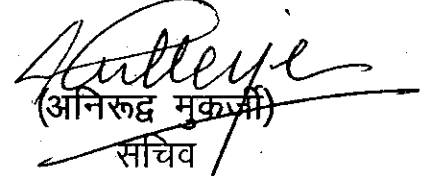 (अनिरूद्व मुकर्जी)
सचिव